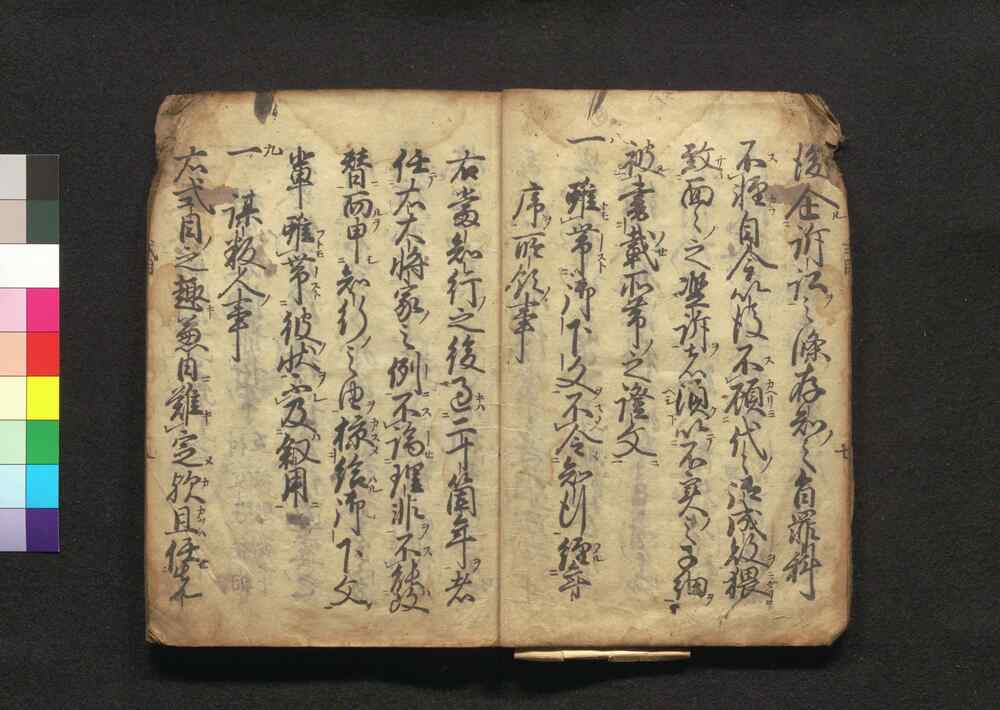 後企訴訟之條存知之旨罪科
不軽自今以後不顧代々御成敗猥
致面々之濫訴者須以不実之子細
被書載所帯之證文
一 雖帯御下文不令知行経年
序所領事
右當知行之後過二十箇年者
任右大将家之例不論理非不能改
替而申知行之由掠給御下文
輩雖帯彼状不及叙用
一 謀叛人事
右式目之趣兼日難定歟且任先